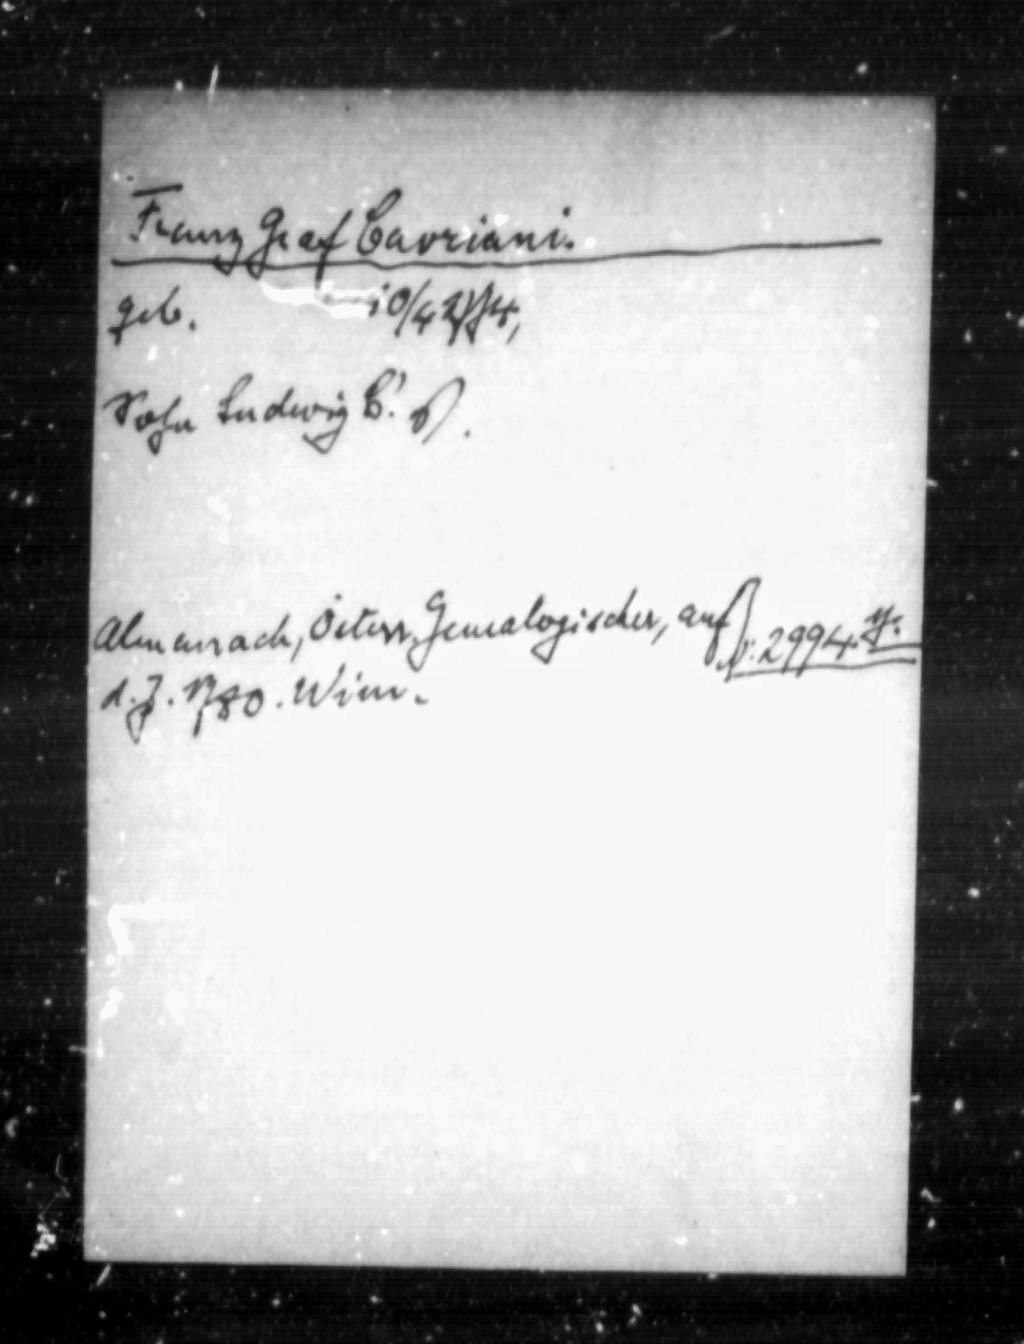 Franz Graf Cavriani.
geb. 10/4
Sohn Ludwig C!
Almanach, Österr. Genealogischer, auf
d. J. 1780. Wien. N: 2994.